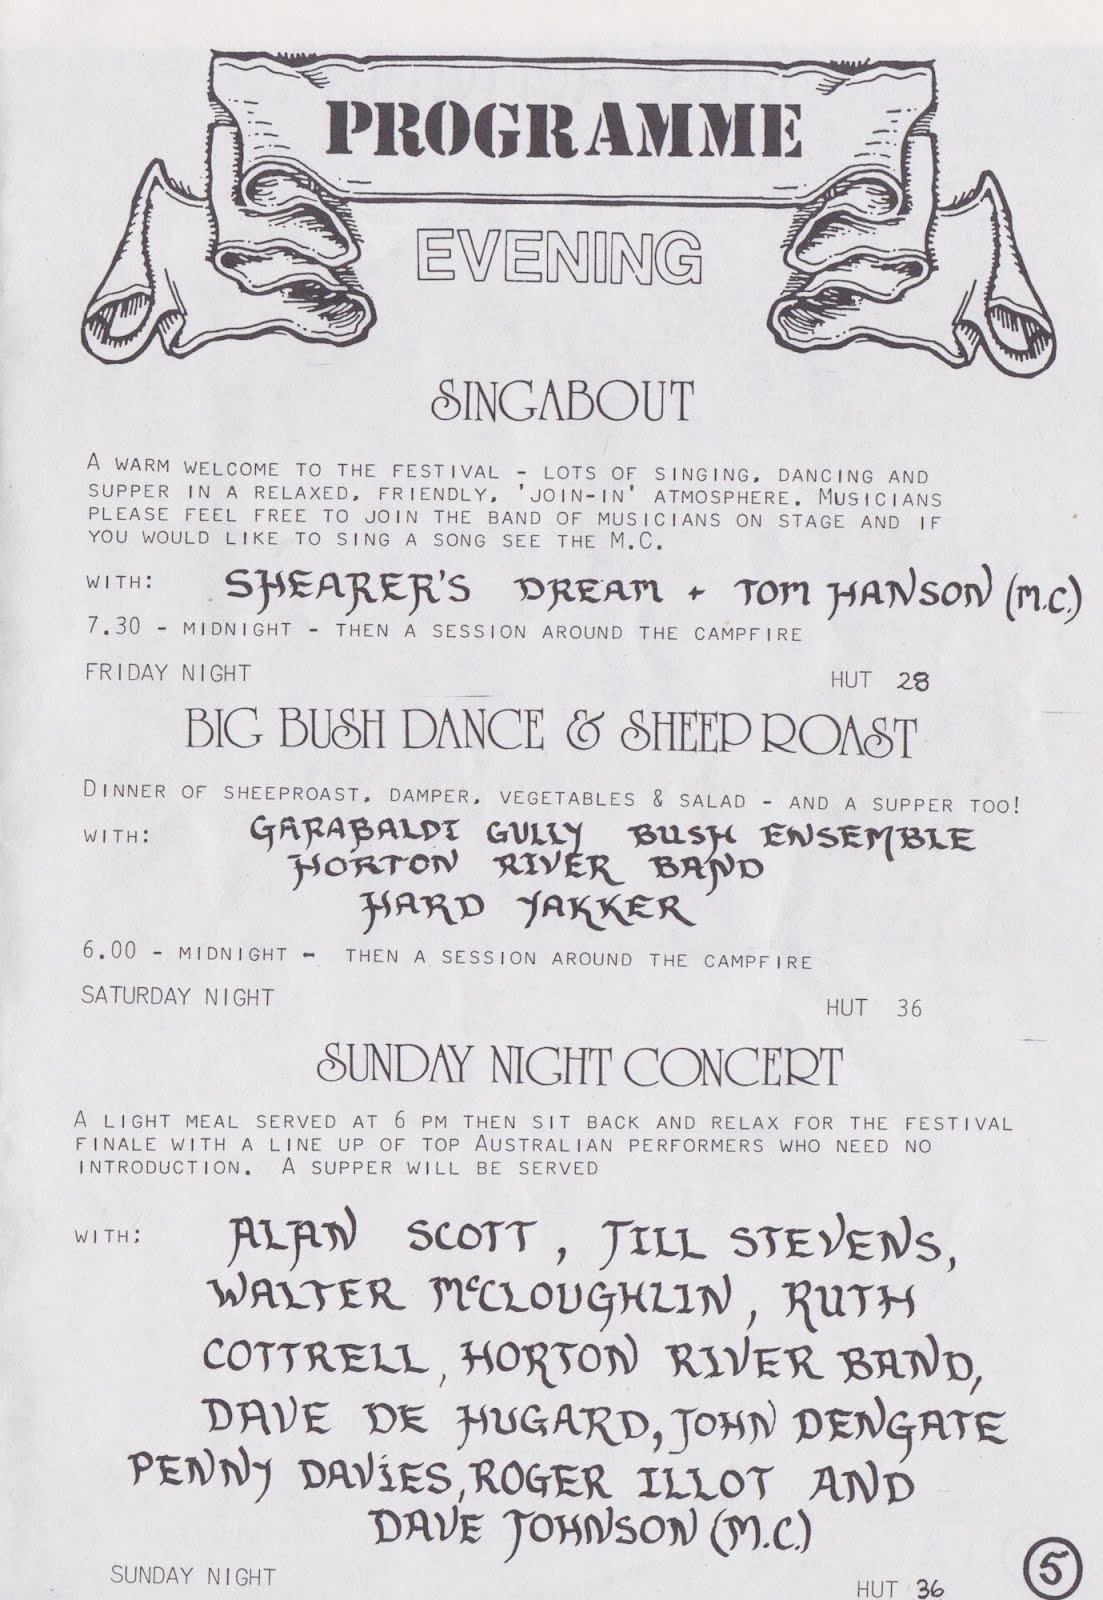 PROGRAMME
EVENING
SINGABOUT
A WARM WELCOME TO THE FESTIVAL - LOTS OF SINGING, DANCING AND
SUPPER IN A RELAXED, FRIENDLY, 'JOIN-IN' ATMOSPHERE. MUSICIANS
PLEASE FEEL FREE TO JOIN THE BAND OF MUSICIANS ON STAGE AND IF
YOU WOULD LIKE TO SING A SONG SEE THE M.C.
WITH: SHEARER'S DREAM + TOM HANSON (M.C.)
7.30 - MIDNIGHT - THEN A SESSION AROUND THE CAMPFIRE
FRIDAY NIGHT HUT 28
BIG BUSH DANCE & SHEEP ROAST
DINNER OF SHEEPROAST, DAMPER, VEGETABLES & SALAD - AND A SUPPER TOO!
WITH: GARABALDI GULLY BUSH ENSEMBLE
HORTON RIVER BAND
HARD YAKKER
6.00 - MIDNIGHT - THEN A SESSION AROUND THE CAMPFIRE
SATURDAY NIGHT HUT 36
SUNDAY NIGHT CONCERT
A LIGHT MEAL SERVED AT 6 PM THEN SIT BACK AND RELAX FOR THE FESTIVAL
FINALE WITH A LINE UP OF TOP AUSTRALIAN PERFORMERS WHO NEED NO
INTRODUCTION. A SUPPER WILL BE SERVED
WITH: ALAN SCOTT, JILL STEVENS,
WALTER McCLOUGHLIN, RUTH
COTTRELL, HORTON RIVER BAND,
DAVE DE HUGARD, JOHN DENGATE
PENNY DAVIES, ROGER ILLOT AND
DAVE JOHNSON (M.C.)
SUNDAY NIGHT HUT 36
5